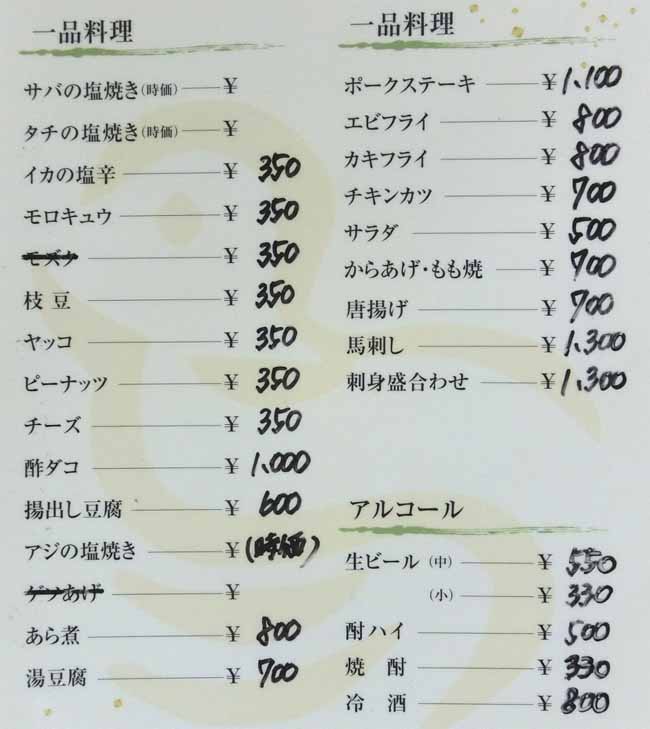 一品料理
サバの塩焼き(時価) ¥
タチの塩焼き(時価) ¥
イカの塩辛 ¥ 350
モロキュウ ¥ 350
モズク ¥ 350
枝豆 ¥ 350
ヤッコ ¥ 350
ピーナッツ ¥ 350
チーズ ¥ 350
酢ダコ ¥ 1,000
揚出し豆腐 ¥ 600
アジの塩焼き ¥ (時価)
ゲソあげ ¥
あら煮 ¥ 800
湯豆腐 ¥ 700
一品料理
ポークステーキ ¥ 1,100
エビフライ ¥ 800
カキフライ ¥ 800
チキンカツ ¥ 700
サラダ ¥ 500
からあげ・もも焼 ¥ 700
唐揚げ ¥ 700
馬刺し ¥ 1,300
刺身盛合わせ ¥ 1,300
アルコール
生ビール (中) ¥ 550
(小) ¥ 330
酎ハイ ¥ 500
焼 酎 ¥ 330
冷 酒 ¥ 800